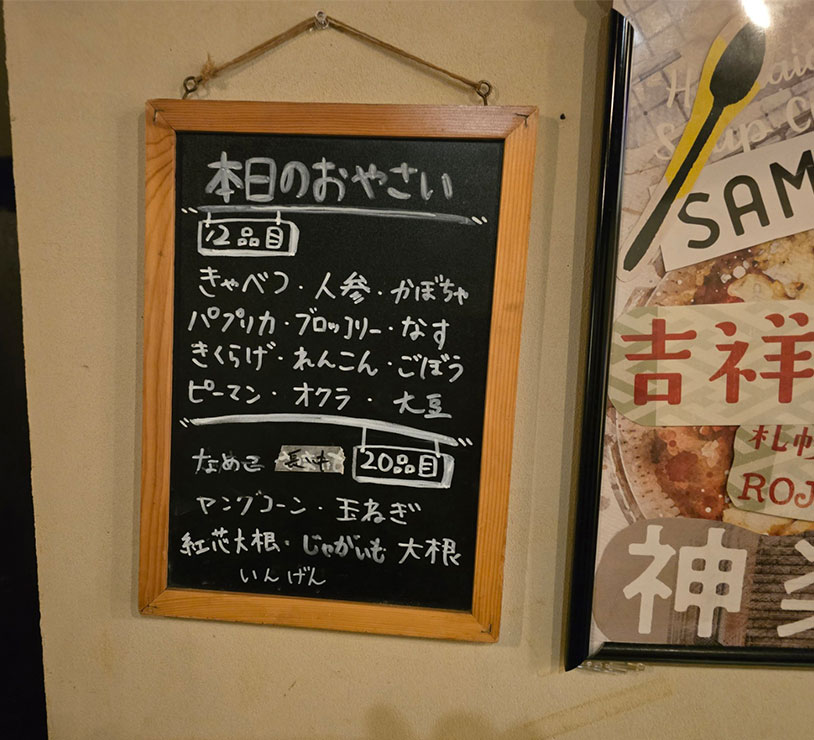 本日のおやさい
12品目
きゃべつ・人参・かぼちゃ
パプリカ・ブロッコリー・なす
きくらげ・れんこん・ごぼう
ピーマン・オクラ・大豆
なめこ 20品目
ヤングコーン・玉ねぎ
紅芯大根・じゃがいも 大根
いんげん
Soup
SAM
吉祥
札幌
ROJ
神